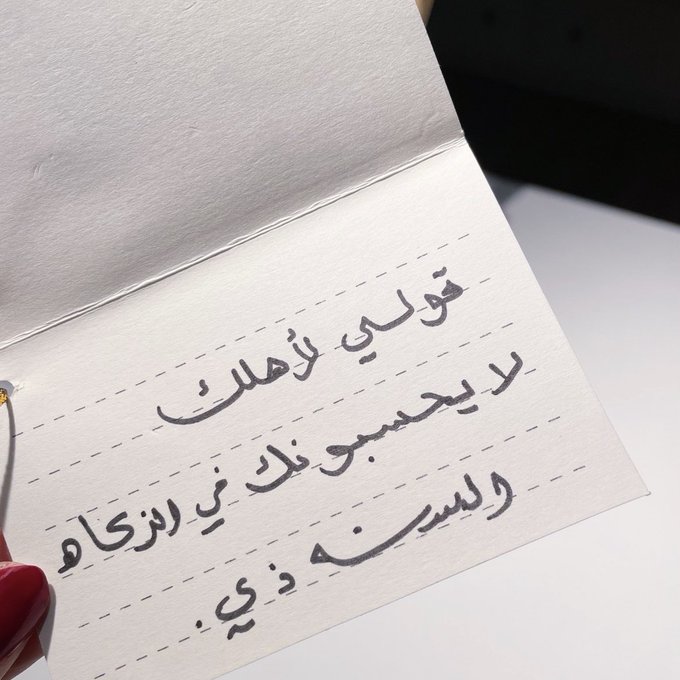 قولي لأهلك
لا يحسبونك في الزكاه
السنه ذي.